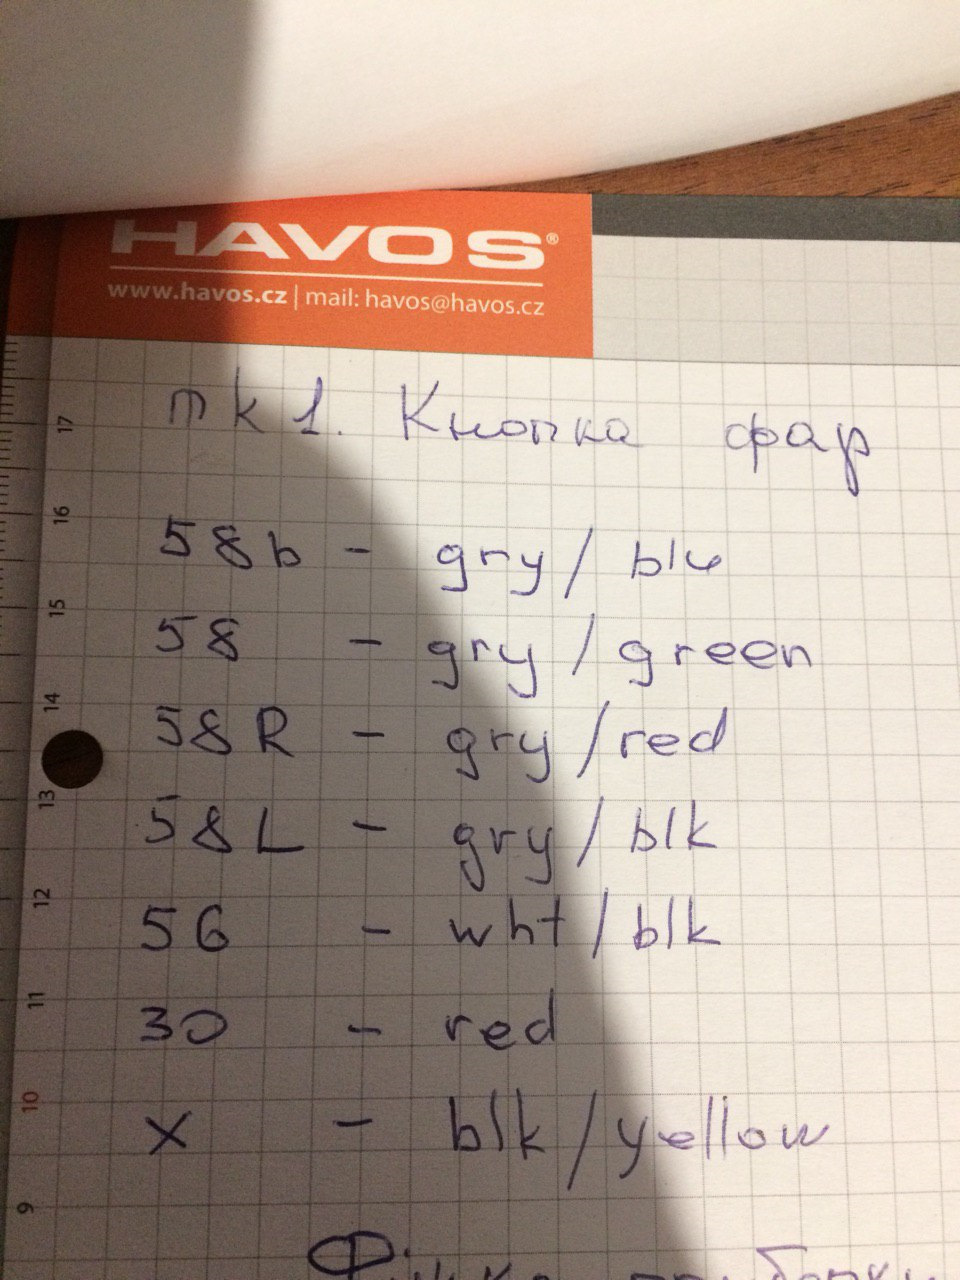 HAVOS®
www.havos.cz | mail: havos@havos.cz
mk1. Кнопка фар
58b - gry/blu
58 - gry/green
58R - gry/red
58L - gry/blk
56 - wht/blk
30 - red
x - blk/yellow
17
16
15
14
13
12
11
10
9